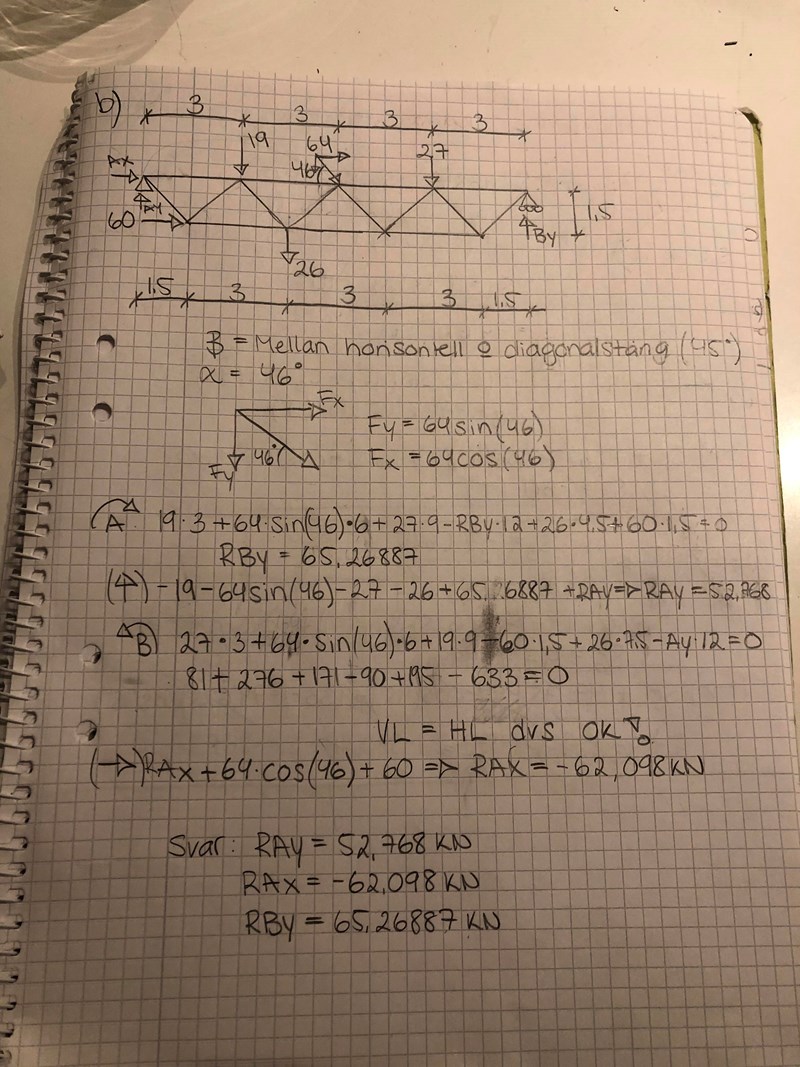 b)
3 3 3 3
19 64 27
Ax 46°
Ay
60 1,5
By
26
1,5 3 3 3 1,5
β = Mellan horisontell o diagonalstång (45°)
α = 46°
Fx
Fy = 64 sin(46)
46° Fx = 64 cos(46)
Fy
A: 19·3+64·sin(46)·6+27·9-RBy·12+26·4.5+60·1,5=0
RBy = 65,26887
(↑) -19-64sin(46)-27-26+65, 6887 +RAy=> RAy = 52,768
B) 27·3+64·sin(46)·6+19·9-60·1,5+26·7.5-Ay·12=0
81+276+171-90+195-633=0
VL = HL dvs OK!
(→)RAx+64·cos(46)+60 => RAx=-62,098KN
Svar: RAy = 52,768 KN
RAx = -62,098 KN
RBy = 65,26887 KN